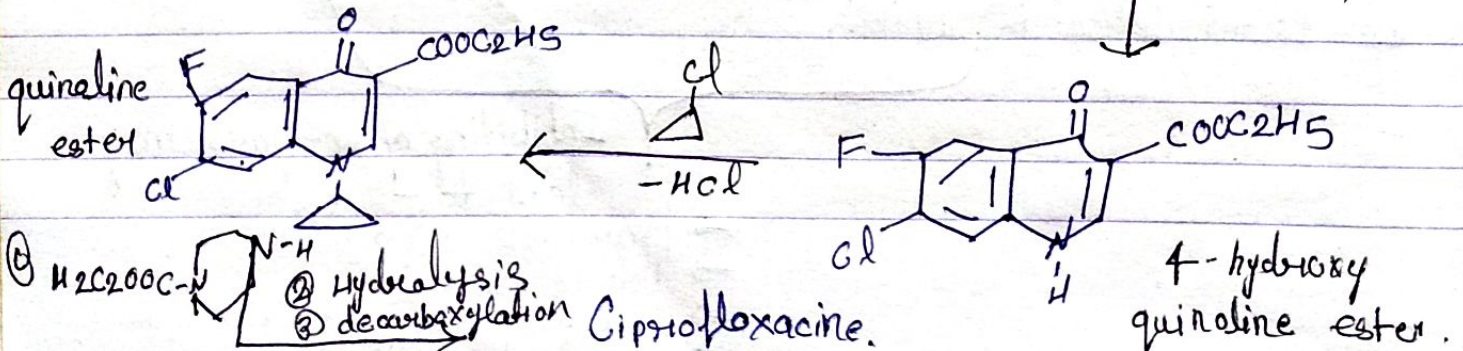 O
COOC2H5
F
quinoline
ester
Cl
N
Cl
-HCl
O
COOC2H5
F
Cl
N
H
4-hydroxy
quinoline ester.
① H2C2OOC-N N-H
② Hydrolysis
③ decarboxylation
Ciprofloxacine.